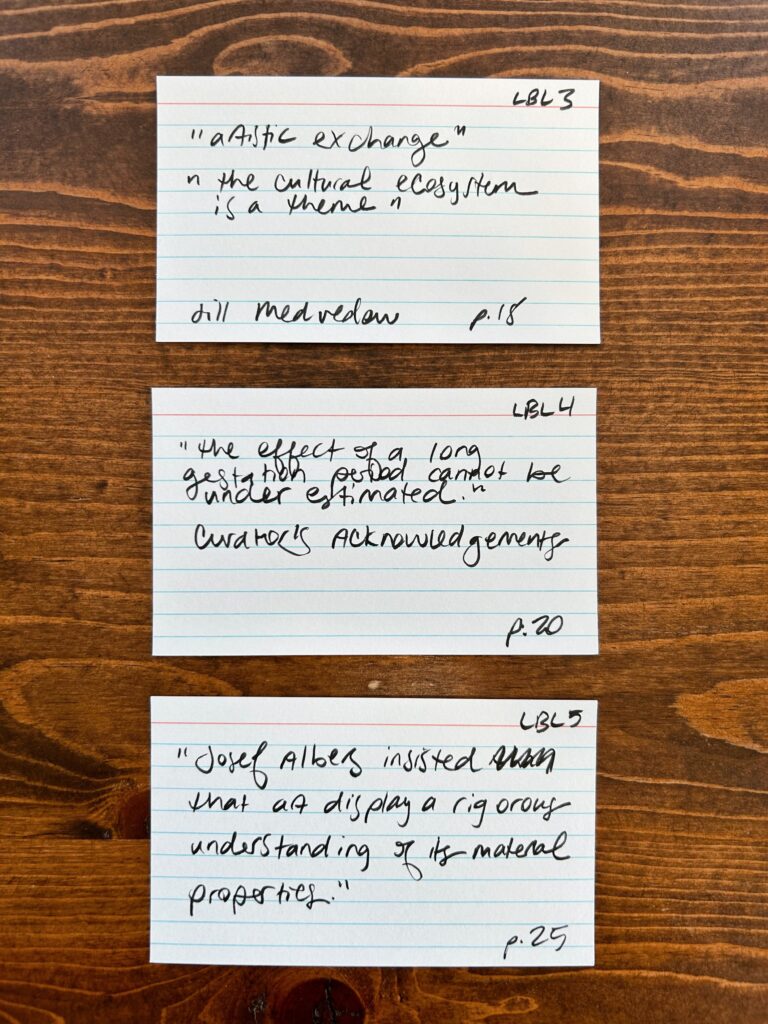 LBL3
"artistic exchange"
"the cultural ecosystem
is a theme"
Jill Medvedow p.18
LBL4
"the effect of a long
gestation period cannot be
under estimated."
Curator's Acknowledgements
p.20
LBL5
"Josef Albers insisted
that art display a rigorous
understanding of its material
properties."
p.25